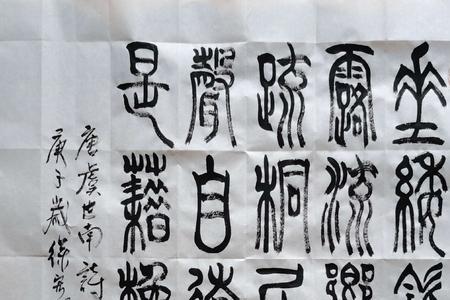 垂緌
露流
疏桐
聲自
是藉
唐虞世南詩
庚子歲徐